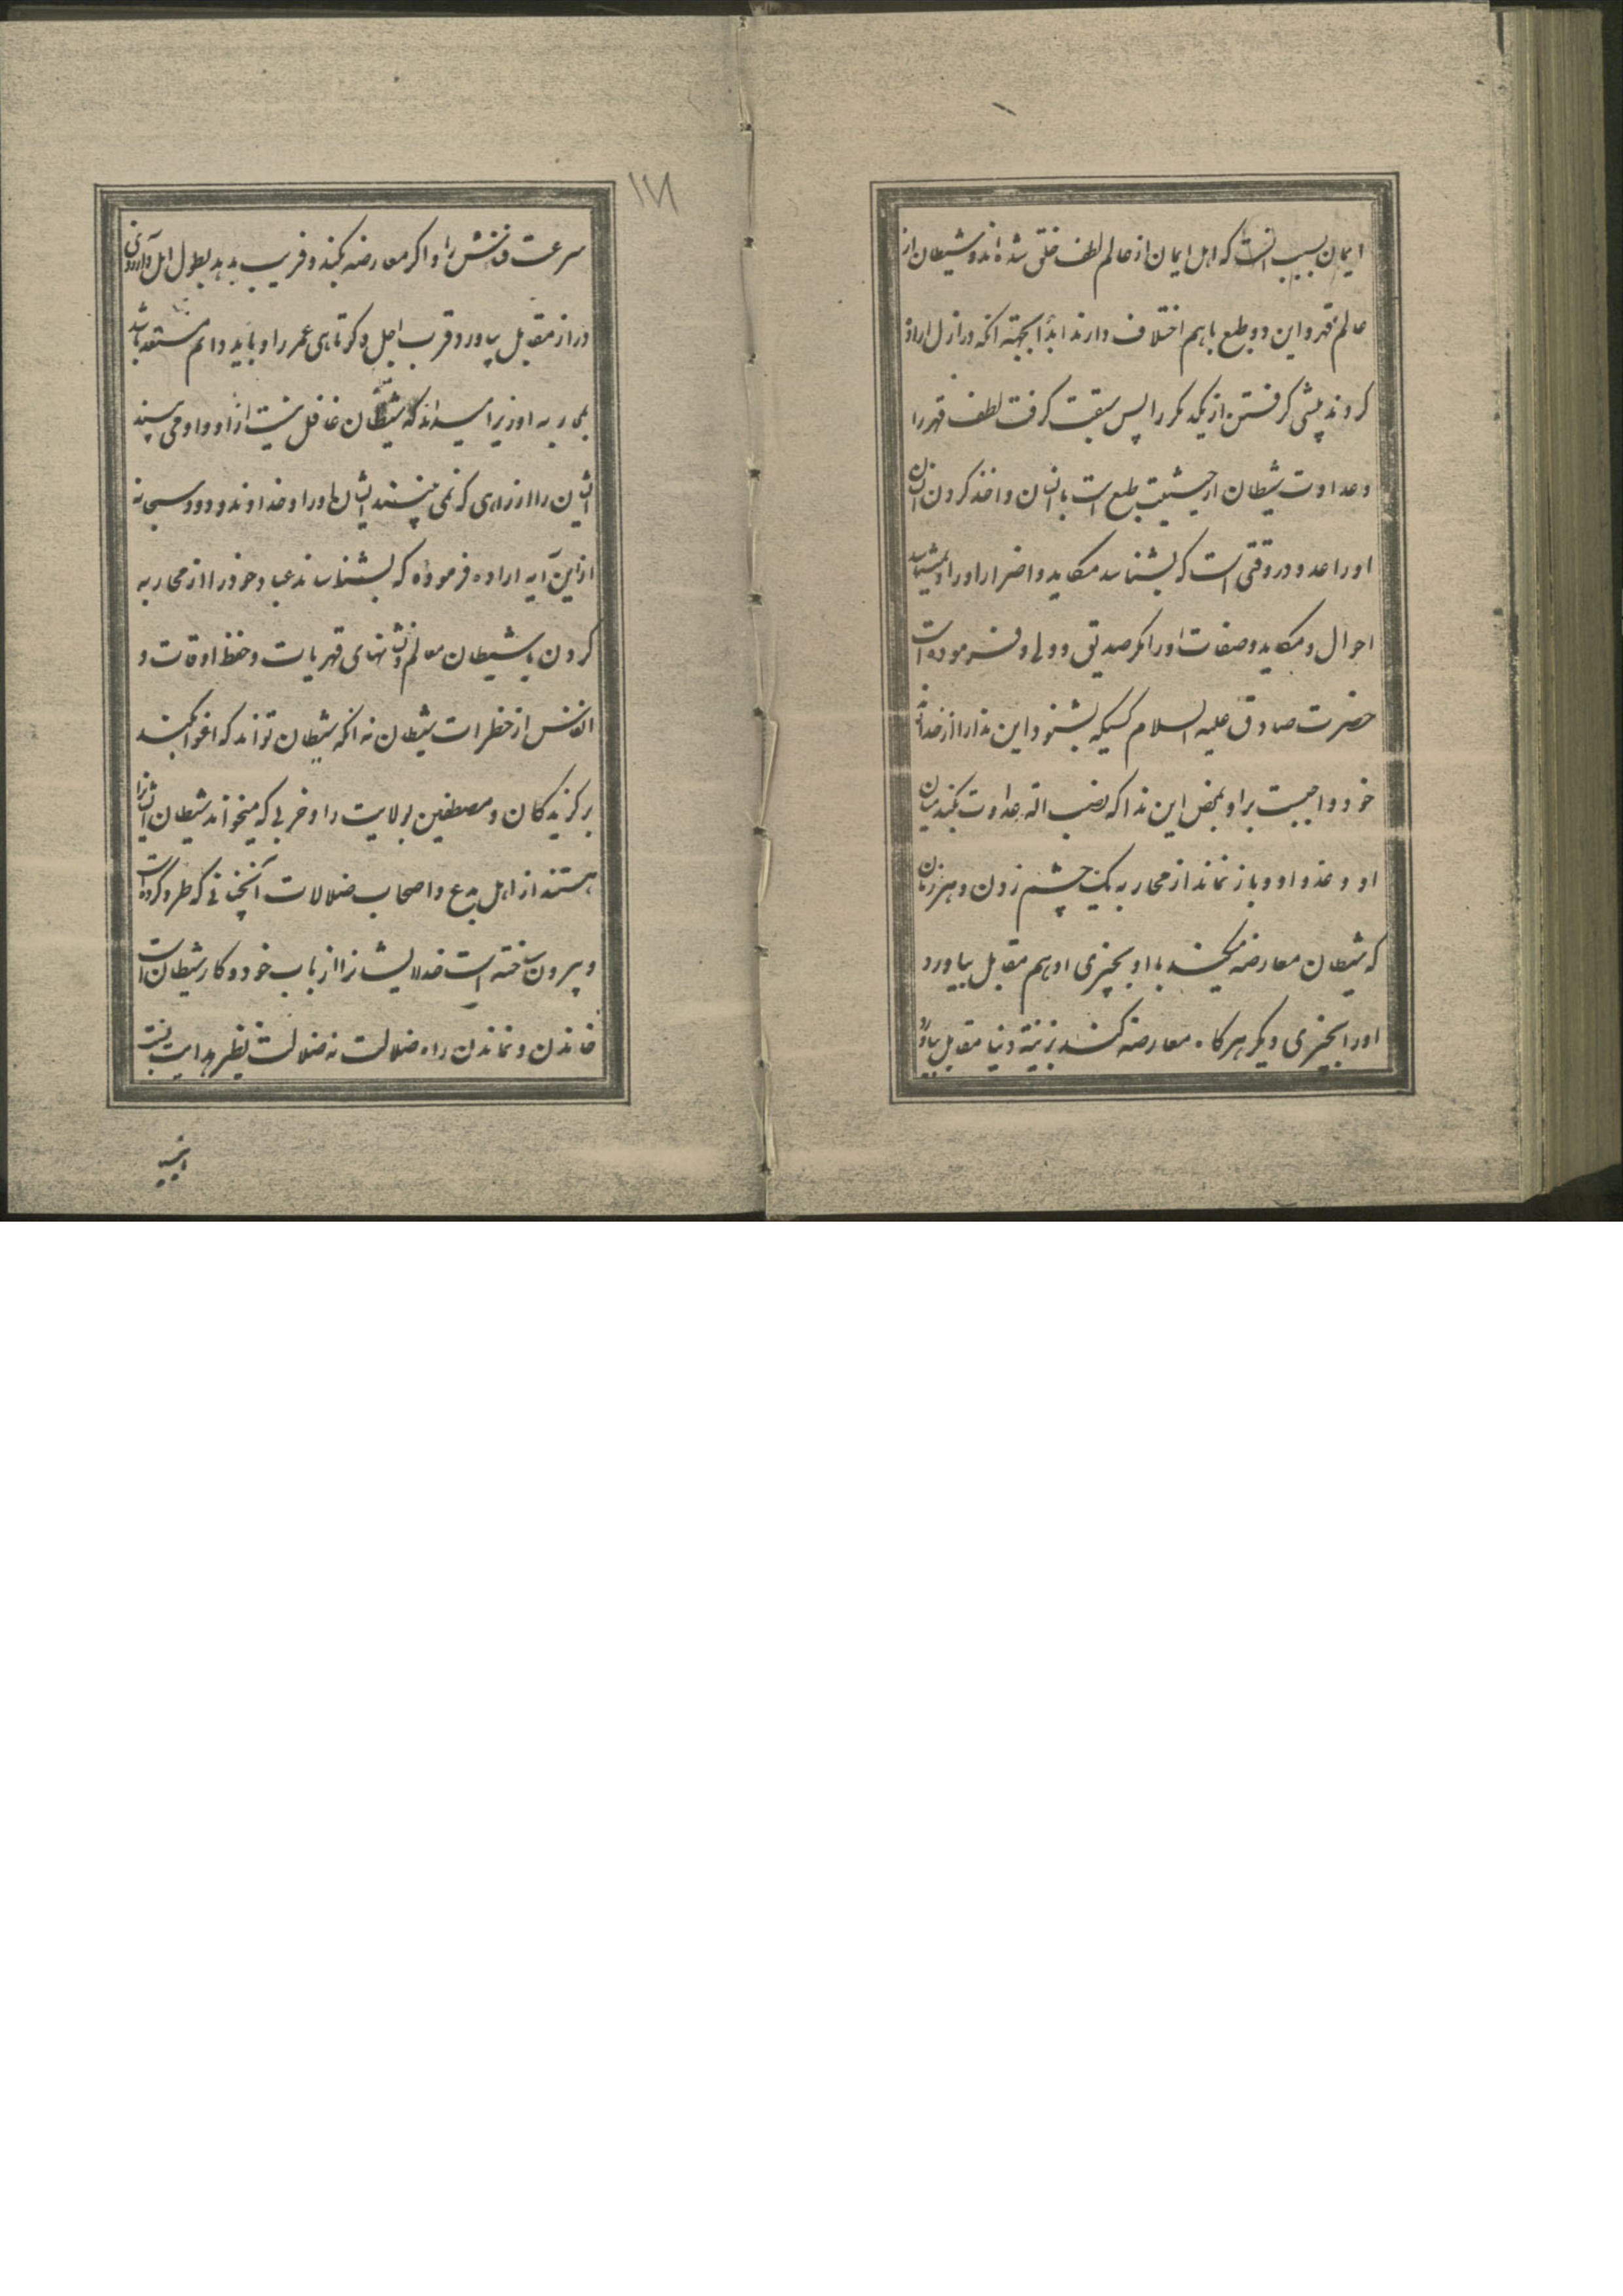 ایمان بسبب انست که اهل ایمان از عالم لطف خلق شده‌اند و شیطان از
عالم قهر و این دو طبع با هم اختلاف دارند ابداً بجهته انکه در ازل اراده
کردند پیشی گرفتن از یکدیگر را پس سبقت گرفت لطف قهر را
و عداوت شیطان از حیثیت طبع است با انسان و اخذ کردن انسان
او را عدو در وقتی است که بشناسد مکاید و اضرار او را و نشناسد
احوال و مکاید و صفات او را مگر صدیق و ولی و فرموده است
حضرت صادق علیه السلام کسیکه بشنود این ندا را از خداوند
خود واجبست بر او بمحض این ندا که نصب اله عداوت بکند میان
او و عدو او و باز نماند از محاربه یک چشم زدن و هر زمان
که شیطان معارضه میکند با او بچیزی او هم مقابل بیاورد
او را بچیزی دیگر هر گاه معارضه کند بزینة دنیا مقابل بیاورد
۱۷۸
سرعت فنائش را و اگر معارضه بکند و فریب بدهد بطول امل و آرزوی
دراز مقابل بیاورد قرب اجل و کوتاهی عمر را و باید دائم مستعد باشد
بمحاربه او زیرا میداند که شیطان غافل نیست از او و او می بیند
ایشان را از راهی که نمی بینند ایشان او را و خداوند ودود سبحانه
از این آیه اراده فرموده که بشناساند عباد خود را از محاربه
کردن با شیطان معالم و نشانهای قهریات و حفظ اوقات و
انفس از خطرات شیطان نه انکه شیطان تواند که اغوا بکند
برگزیدگان و مصطفین بولایت را و حزبی که میخواند شیطان ایشانرا
هستند از اهل بدع و اصحاب ضلالات آنچنانی که طرد کرده است
و بیرون ساخته است خدا ایشانرا از باب خود و کار شیطان است
خواندن و نماندن راه ضلالت نه ضلالت نظیر هدایت نیست
انبیا